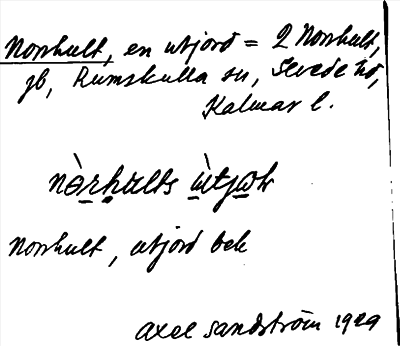 Norrhult, en utjord = 2 Norrhult,
jb, Rumskulla sn, Sevede hd,
Kalmar l.
Norrhult, utjord bek
Axel Sandström 1929